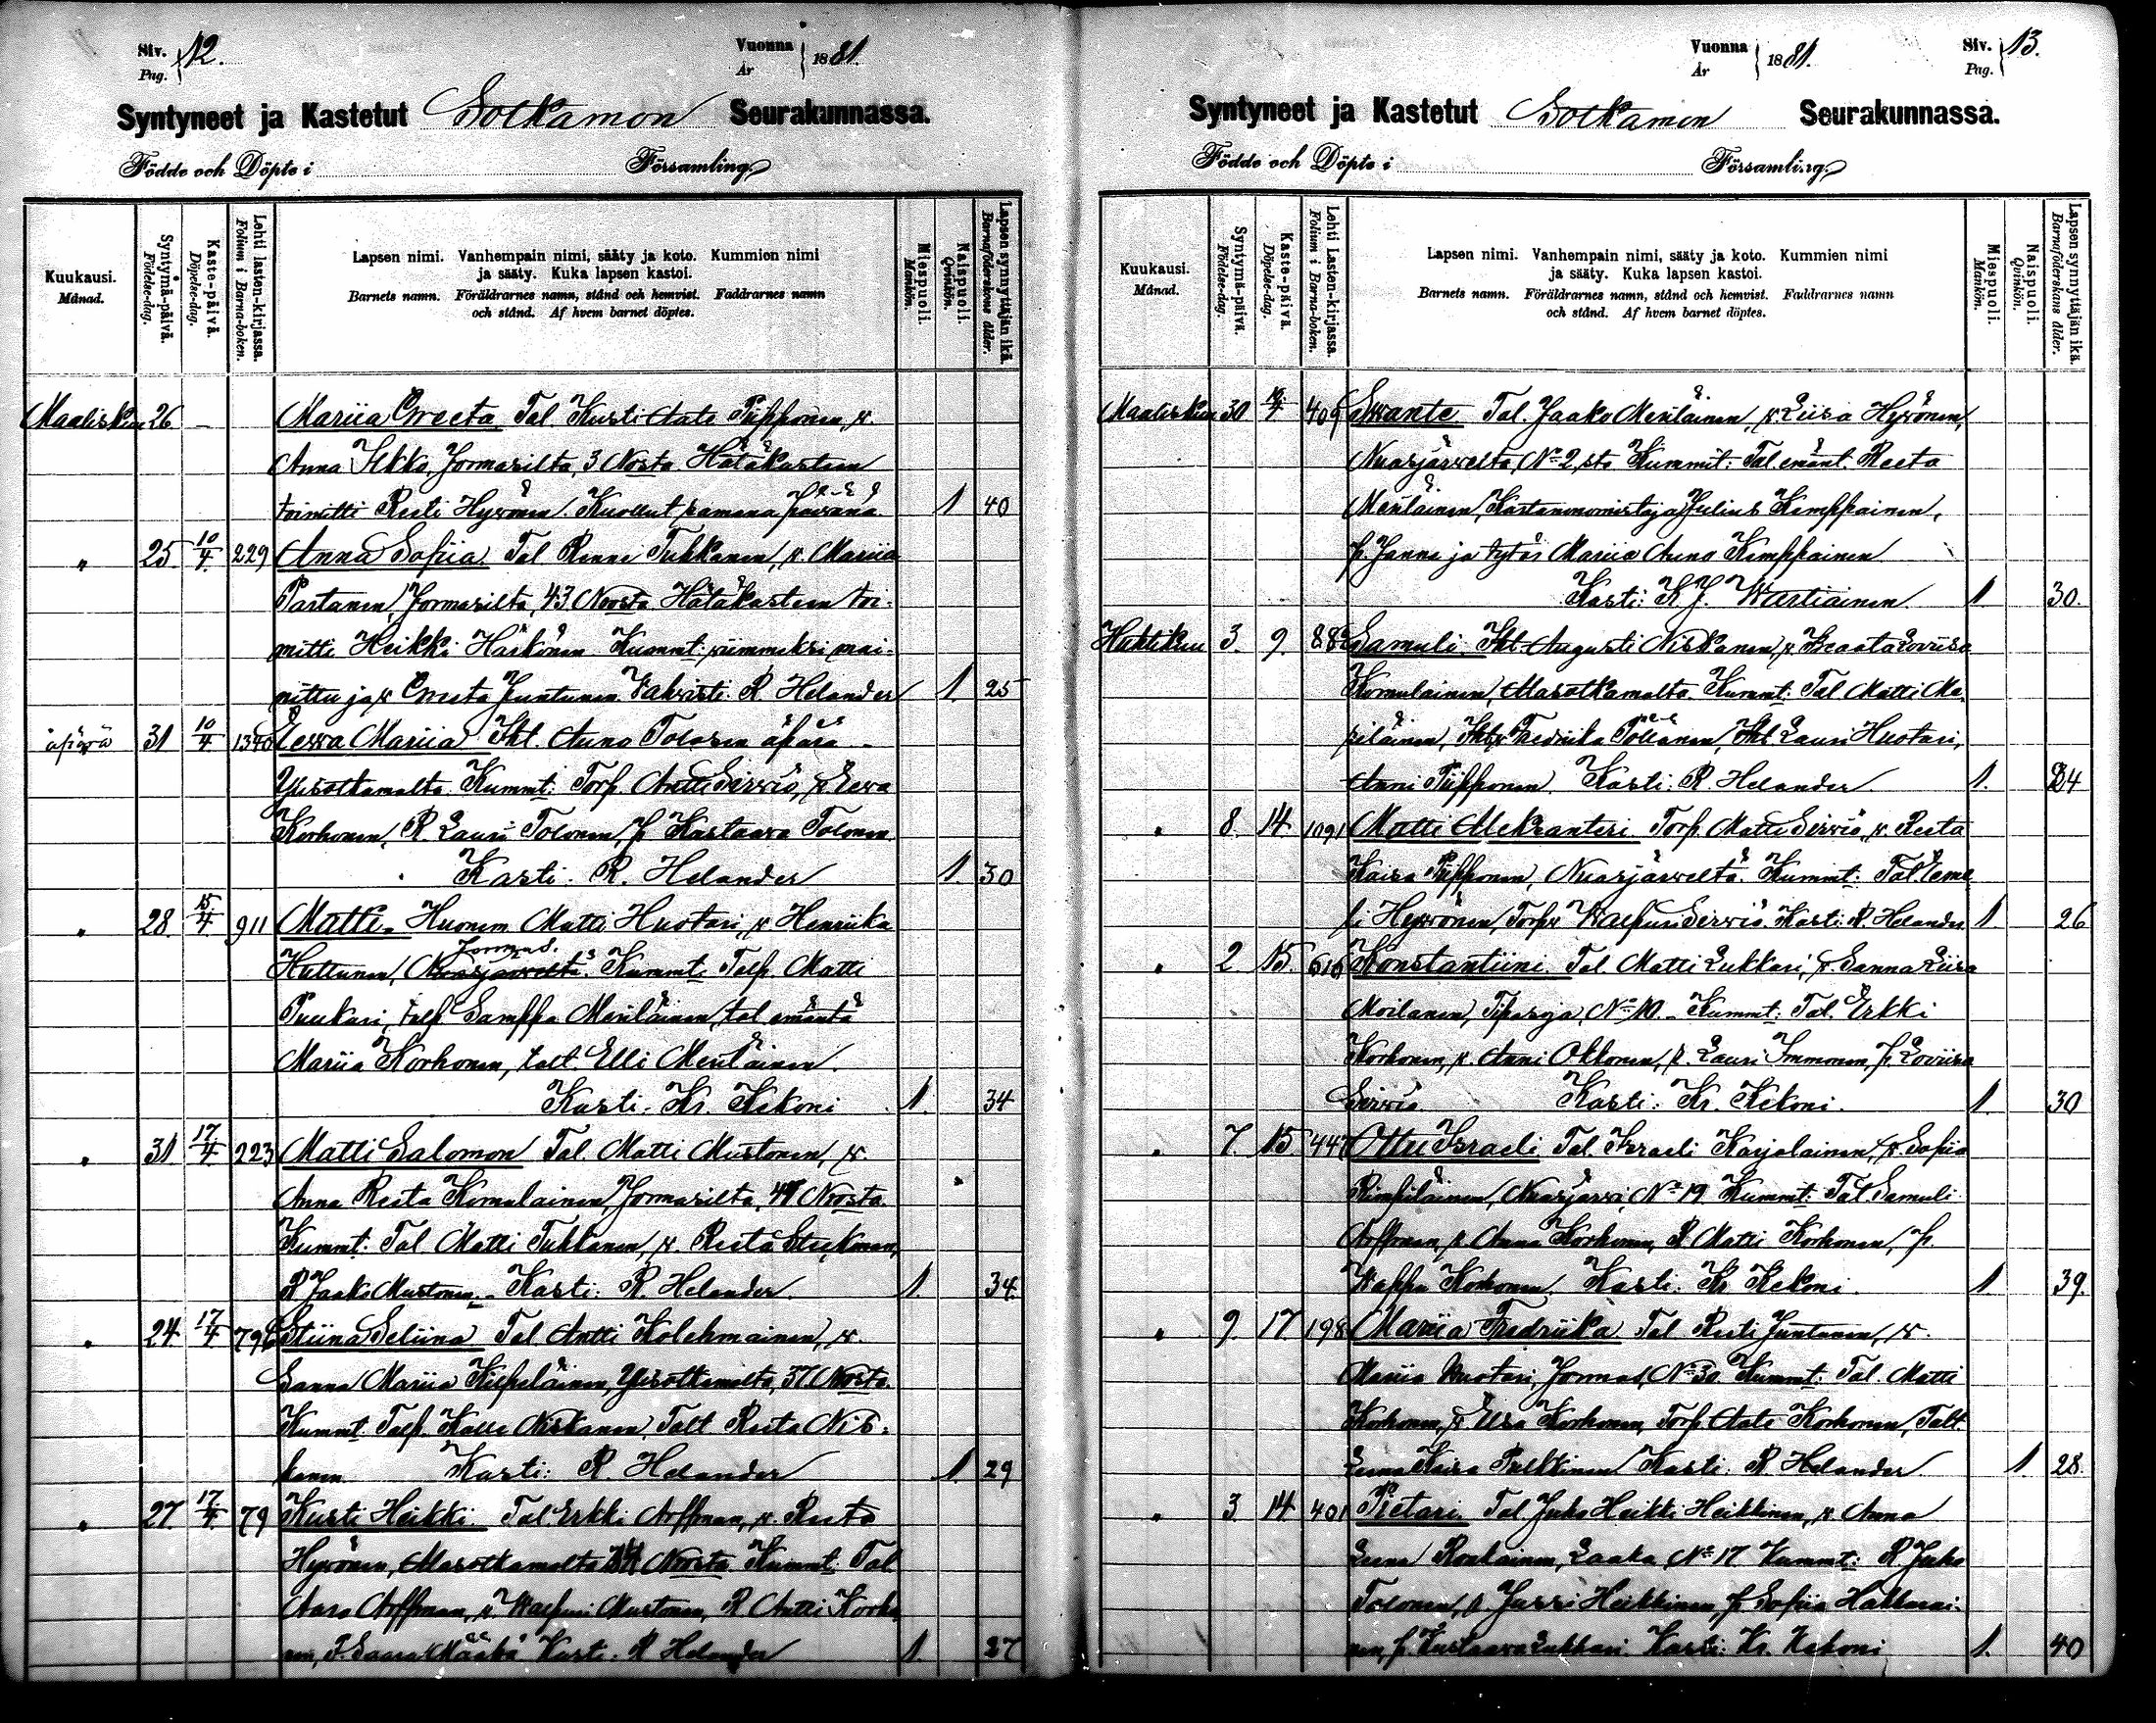 Siv. 12.
Pag.
Vuonna 1881.
År
Syntyneet ja Kastetut Sotkamon Seurakunnassa.
Födde och Döpte i Församling.
Kuukausi.
Månad.
Syntymä-päivä.
Födelse-dag.
Kaste-päivä.
Döpelse-dag.
Lehti lasten-kirjassa.
Folium i Barna-boken.
Lapsen nimi. Vanhempain nimi, sääty ja koto. Kummien nimi
ja sääty. Kuka lapsen kastoi.
Barnets namn. Föräldrarnes namn, stånd och hemvist. Faddrarnes namn
och stånd. Af hvem barnet döptes.
Miespuoli.
Mankön.
Naispuoli.
Qvinkön.
Lapsen synnyttäjän ikä.
Barnaföderskans ålder.
Maaliskuu 26 – Mariia Greeta Tal. Kusti Aato Piipponen, v.
Anna Ikko, Jormasilta, 3 N:osta Hätäkasteen
toimitti Reeti Hyvönen. Kuollut samana päivänä. 1 40
" 25 10/4 229 Anna Sofiia. Tal. Renni Tukkanen, v. Mariia
Partanen, Jormasilta, 43 N:osta Hätäkasteen toi-
mitti Heikki Härkönen Kummit: viimmeksi mai-
nittu ja v. Greeta Juntunen. Vahvisti R. Helander 1. 25
äpärä 31 10/4 1340 Eeva Mariia Itl. Anna Tolosen äpärä –
Ylisotkamolta. Kummit: Torp. Antti Sirviö, v. Eeva
Korhonen, R. Lauri Tolonen, p. Kustaava Tolonen
Kasti: R. Helander 1. 30
" 28. 15/4 911 Matti – Huonem. Matti Huotari, v. Henriika
Jormas.
Huttunen, Nuasjärveltä. Kummit: Talp. Matti
Puukari, talp. Samppa Meriläinen, tal. emäntä
Mariia Korhonen, talt. Elli Meriläinen.
Kasti: Kr. Kekoni 1. 34
" 31 17/4 223 Matti Salomon Tal. Matti Mustonen, v.
Anna Reeta Komulainen, Jormasilta, 47 N:osta.
Kummit: Tal. Matti Tukkanen, v. Reeta
R. Jaako Mustonen. – Kasti: R. Helander. 1. 34.
" 24. 17/4 Stiina Seliina Tal. Antti Kolehmainen, v.
Sanna Mariia Kilpeläinen, Ylisotkamolta, 37. N:osta.
Kummit: Talp. Kalle Niskanen, Talt. Reeta Nis-
kanen Kasti: R. Helander 1. 29
" 27. 17/4. 79 Kusti Heikki. Tal. Erkki Arffman, v. Reeta
Hyvönen, Alasotkamolta N:osta. Kummit: Tal.
Arffman, v. Valpuri Mustonen, R. Antti Korho-
nen, P. Saara Kasti: R. Helander 1. 27
Vuonna 1881.
År
Siv. 13.
Pag.
Syntyneet ja Kastetut Sotkamon Seurakunnassa.
Födde och Döpte i Församling.
Kuukausi.
Månad.
Syntymä-päivä.
Födelse-dag.
Kaste-päivä.
Döpelse-dag.
Lehti Lasten-kirjassa.
Folium i Barna-boken.
Lapsen nimi. Vanhempain nimi, sääty ja koto. Kummien nimi
ja sääty. Kuka lapsen kastoi.
Barnets namn. Föräldrarnes namn, stånd och hemvist. Faddrarnes namn
och stånd. Af hvem barnet döptes.
Miespuoli.
Mankön.
Naispuoli.
Qvinkön.
Lapsen synnyttäjän ikä.
Barnaföderskans ålder.
Maaliskuu 30 409 Swante Tal. Jaako Meriläinen, v. Liisa Hyvönen,
Nuasjärveltä, No 2,sta Kummit: Tal. emänt. Reeta
Meriläinen, Kartanonomistaja Julius Kemppainen,
p. Janne ja tytär Mariia Anna Kemppainen
Kasti: K. J. Wartiainen. 1 30.
Huhtikuu 3. 9. 882 Samuli Itl. Augusti Niskanen, v. Beaata Loviisa
Komulainen, Alasotkamolta. Kummit: Tal. Matti
Fredriika Pöllänen, Itl. Lauri Huotari,
Anni Piipponen. Kasti: R. Helander 1. 24
" 8. 14 1091 Matti Aleksanteri Torp. Matti Sirviö, v. Reeta
Kaisa Piipponen, Nuasjärveltä. Kummit: Tal.
Hyvönen, Torp.v Walpuri Sirviö. Kasti R. Helander 1. 26
" 2 15. 616 Konstantiini Tal. Matti Lukkari, v. Sanna Liisa
Moilanen, Tipasoja, No 10. – Kummit: Tal. Erkki
Korhonen, v. Anni Okkonen, R. Lauri Immonen, p. Loviisa
Sirviö. Kasti: Kr. Kekoni. 1. 30
" 7. 15. 447 Ottu Israeli Tal. Israeli Karjalainen, v. Sofiia
Rimpiläinen, Nuasjärvi, No 19 Kummit: Tal. Samuli
Arffman, v. Anna Korhonen, R. Matti Korhonen, p.
Wappu Korhonen. Kasti: Kr. Kekoni. 1 39.
" 9. 17 198 Mariia Fredriika Tal. Reeti Juntunen, v.
Mariia Huotari, Jormas, No 30 Kummit: Tal. Matti
Korhonen, v. Elsa Korhonen, Torp. Aato Korhonen, Talt.
Leena Kaisa Pulkkinen Kasti. R. Helander. 1. 28.
" 3. 14 401 Pietari Tal. Juho Heikki Heikkinen, v. Anna
Leena Laaka No 17 Kummit: R. Juho
Tolonen, R. Jussi Heikkinen, p. Sofiia Hakkarai-
nen, p. Kustaava Lukkari. Kasti: Kr. Kekoni 1. 40